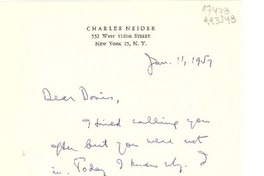 17478
CHARLES NEIDER
552 WEST 114TH STREET
NEW YORK 25, N. Y.
Jan. 11, 1959
Dear Doris,
I tried calling you
after but you were not
in. Today I know why. I